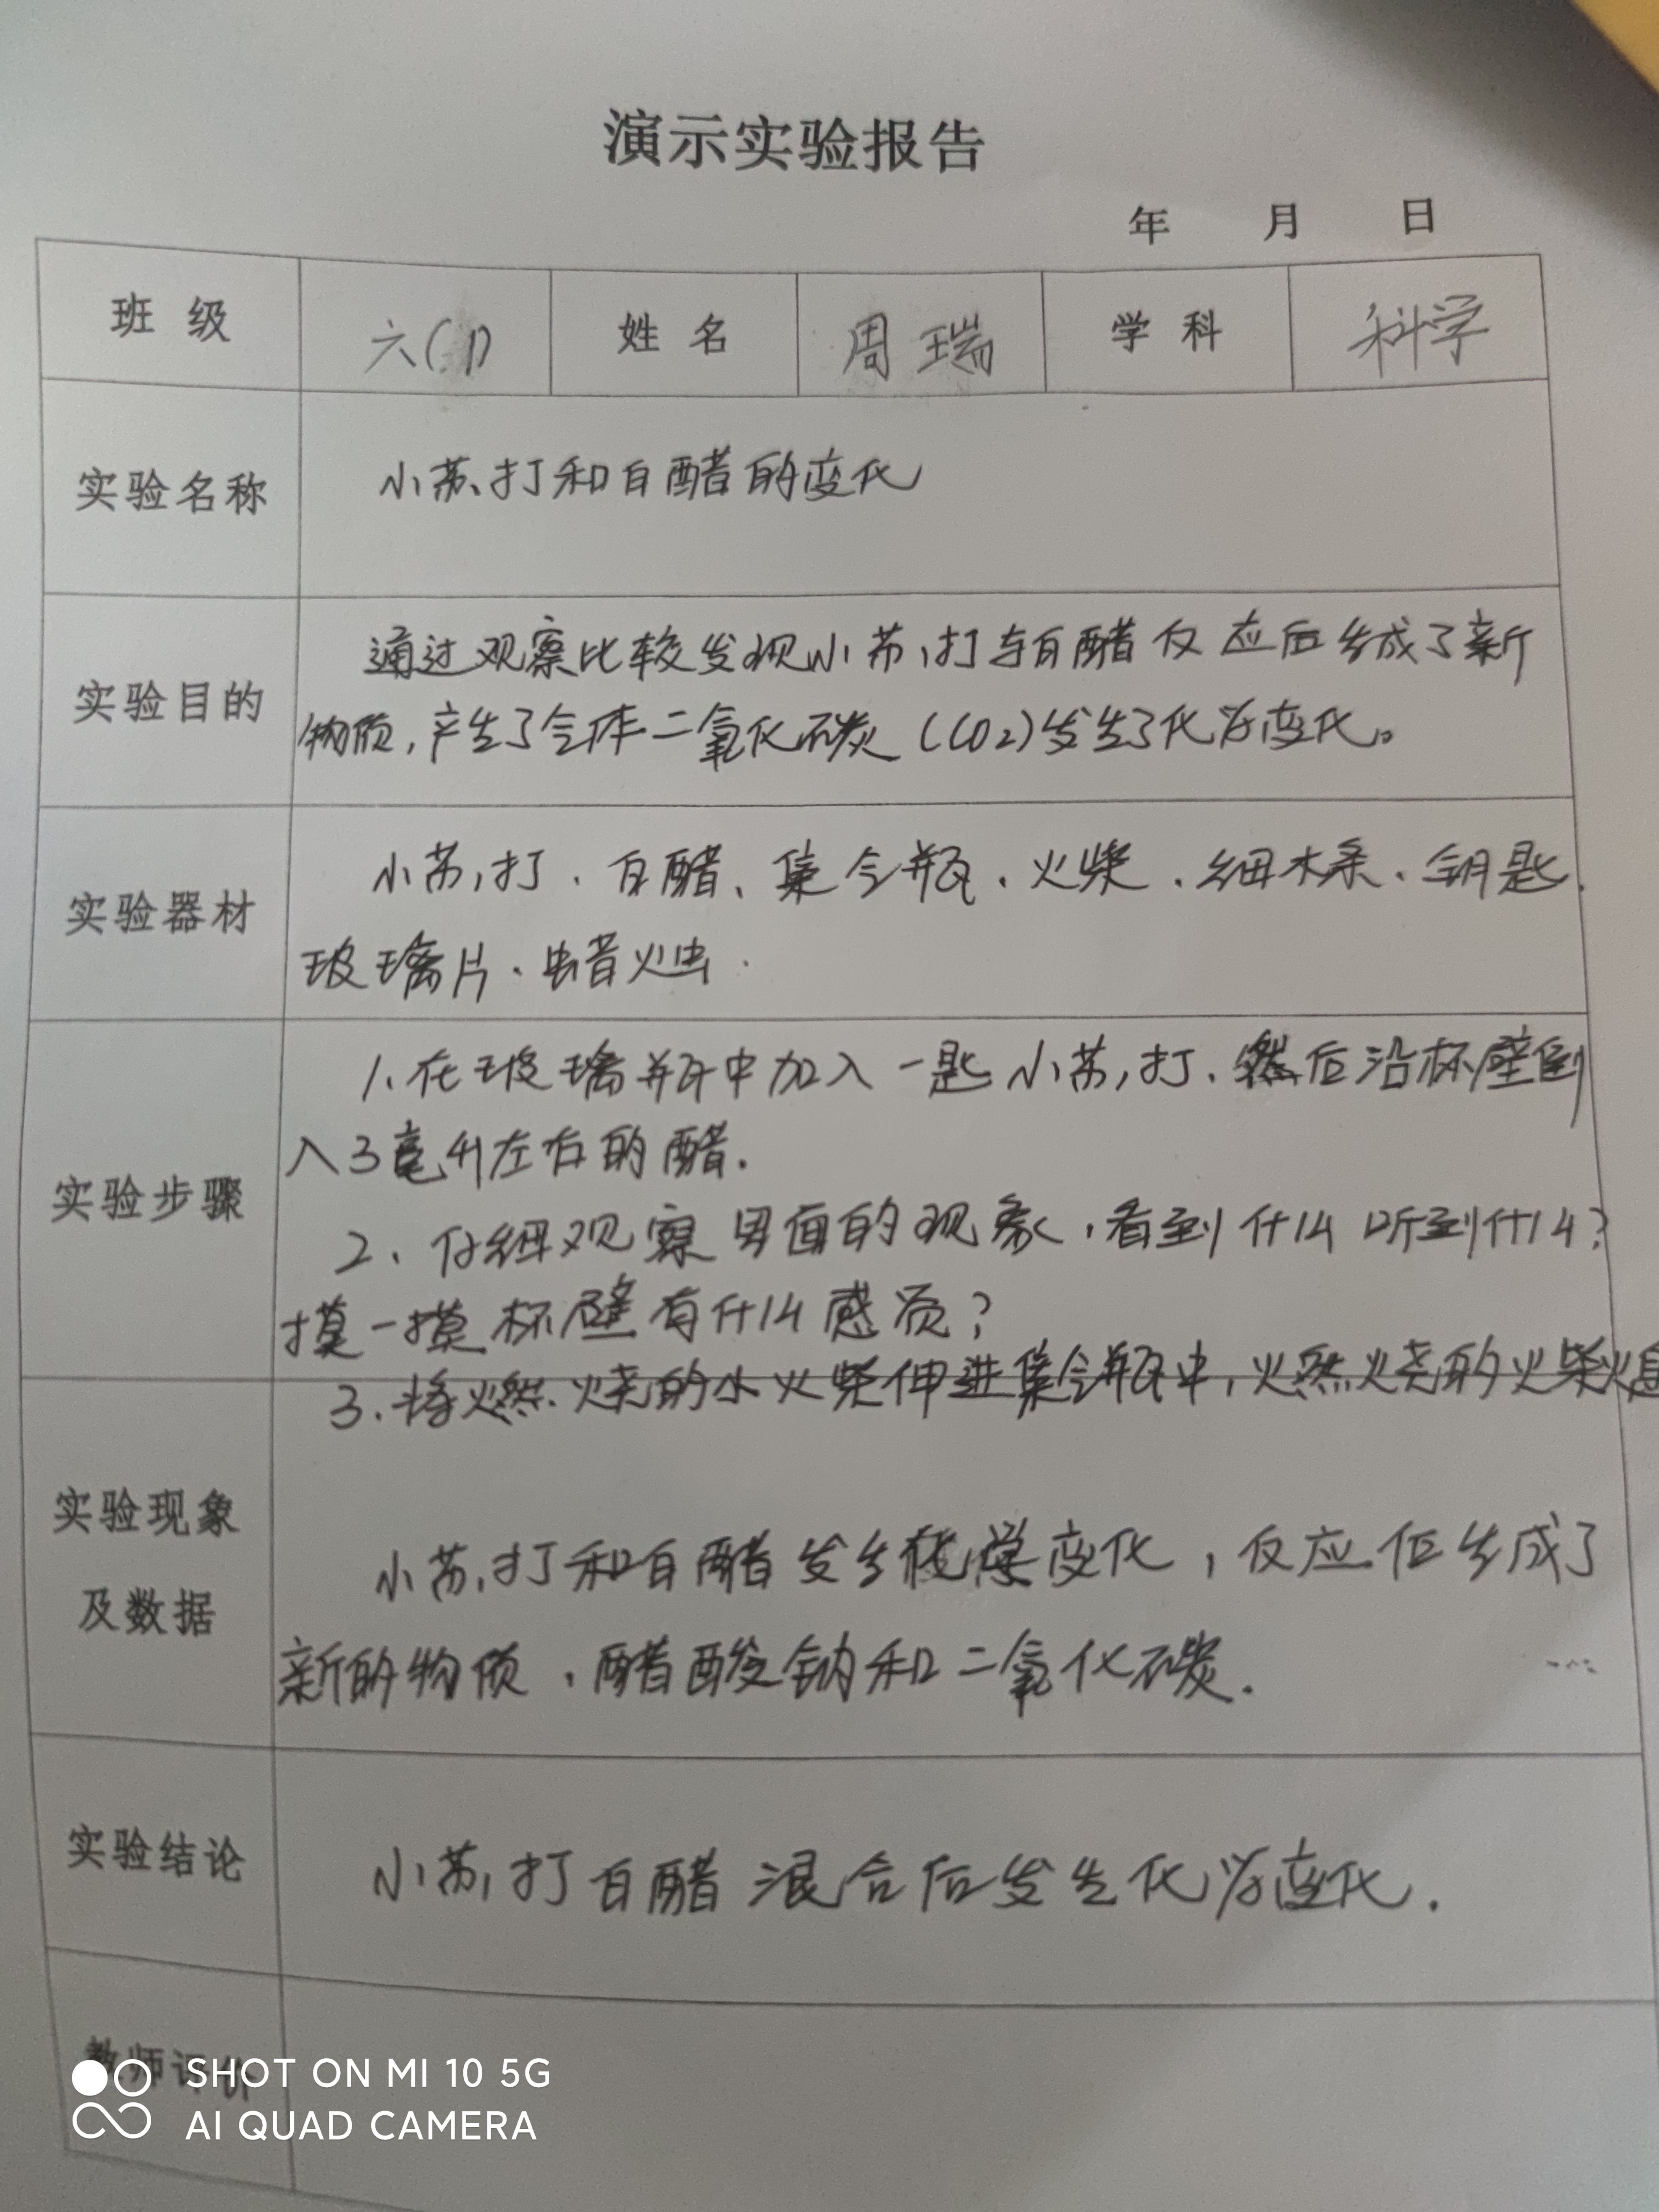 演示实验报告
年 月 日
班 级 六(1) 姓 名 周瑞 学 科 科学
实验名称 小苏打和白醋的变化
实验目的 通过观察比较发现小苏打与白醋反应后生成了新
物质,产生了气体二氧化碳(CO2)发生了化学变化。
实验器材 小苏打、白醋、集气瓶、火柴、细木条、钥匙、
玻璃片、蜡烛.
实验步骤 1.在玻璃瓶中加入一匙小苏打、然后沿杯壁倒
入3毫升左右的醋.
2、仔细观察里面的现象,看到什么听到什么?
摸一摸杯壁有什么感觉?
3.将燃烧的小火柴伸进集气瓶中,燃烧的火柴熄
实验现象
及数据
小苏打和白醋发生化学变化,反应后生成了
新的物质,醋酸钠和二氧化碳.
实验结论 小苏打白醋混合后发生化学变化.
教师评价
SHOT ON MI 10 5G
AI QUAD CAMERA